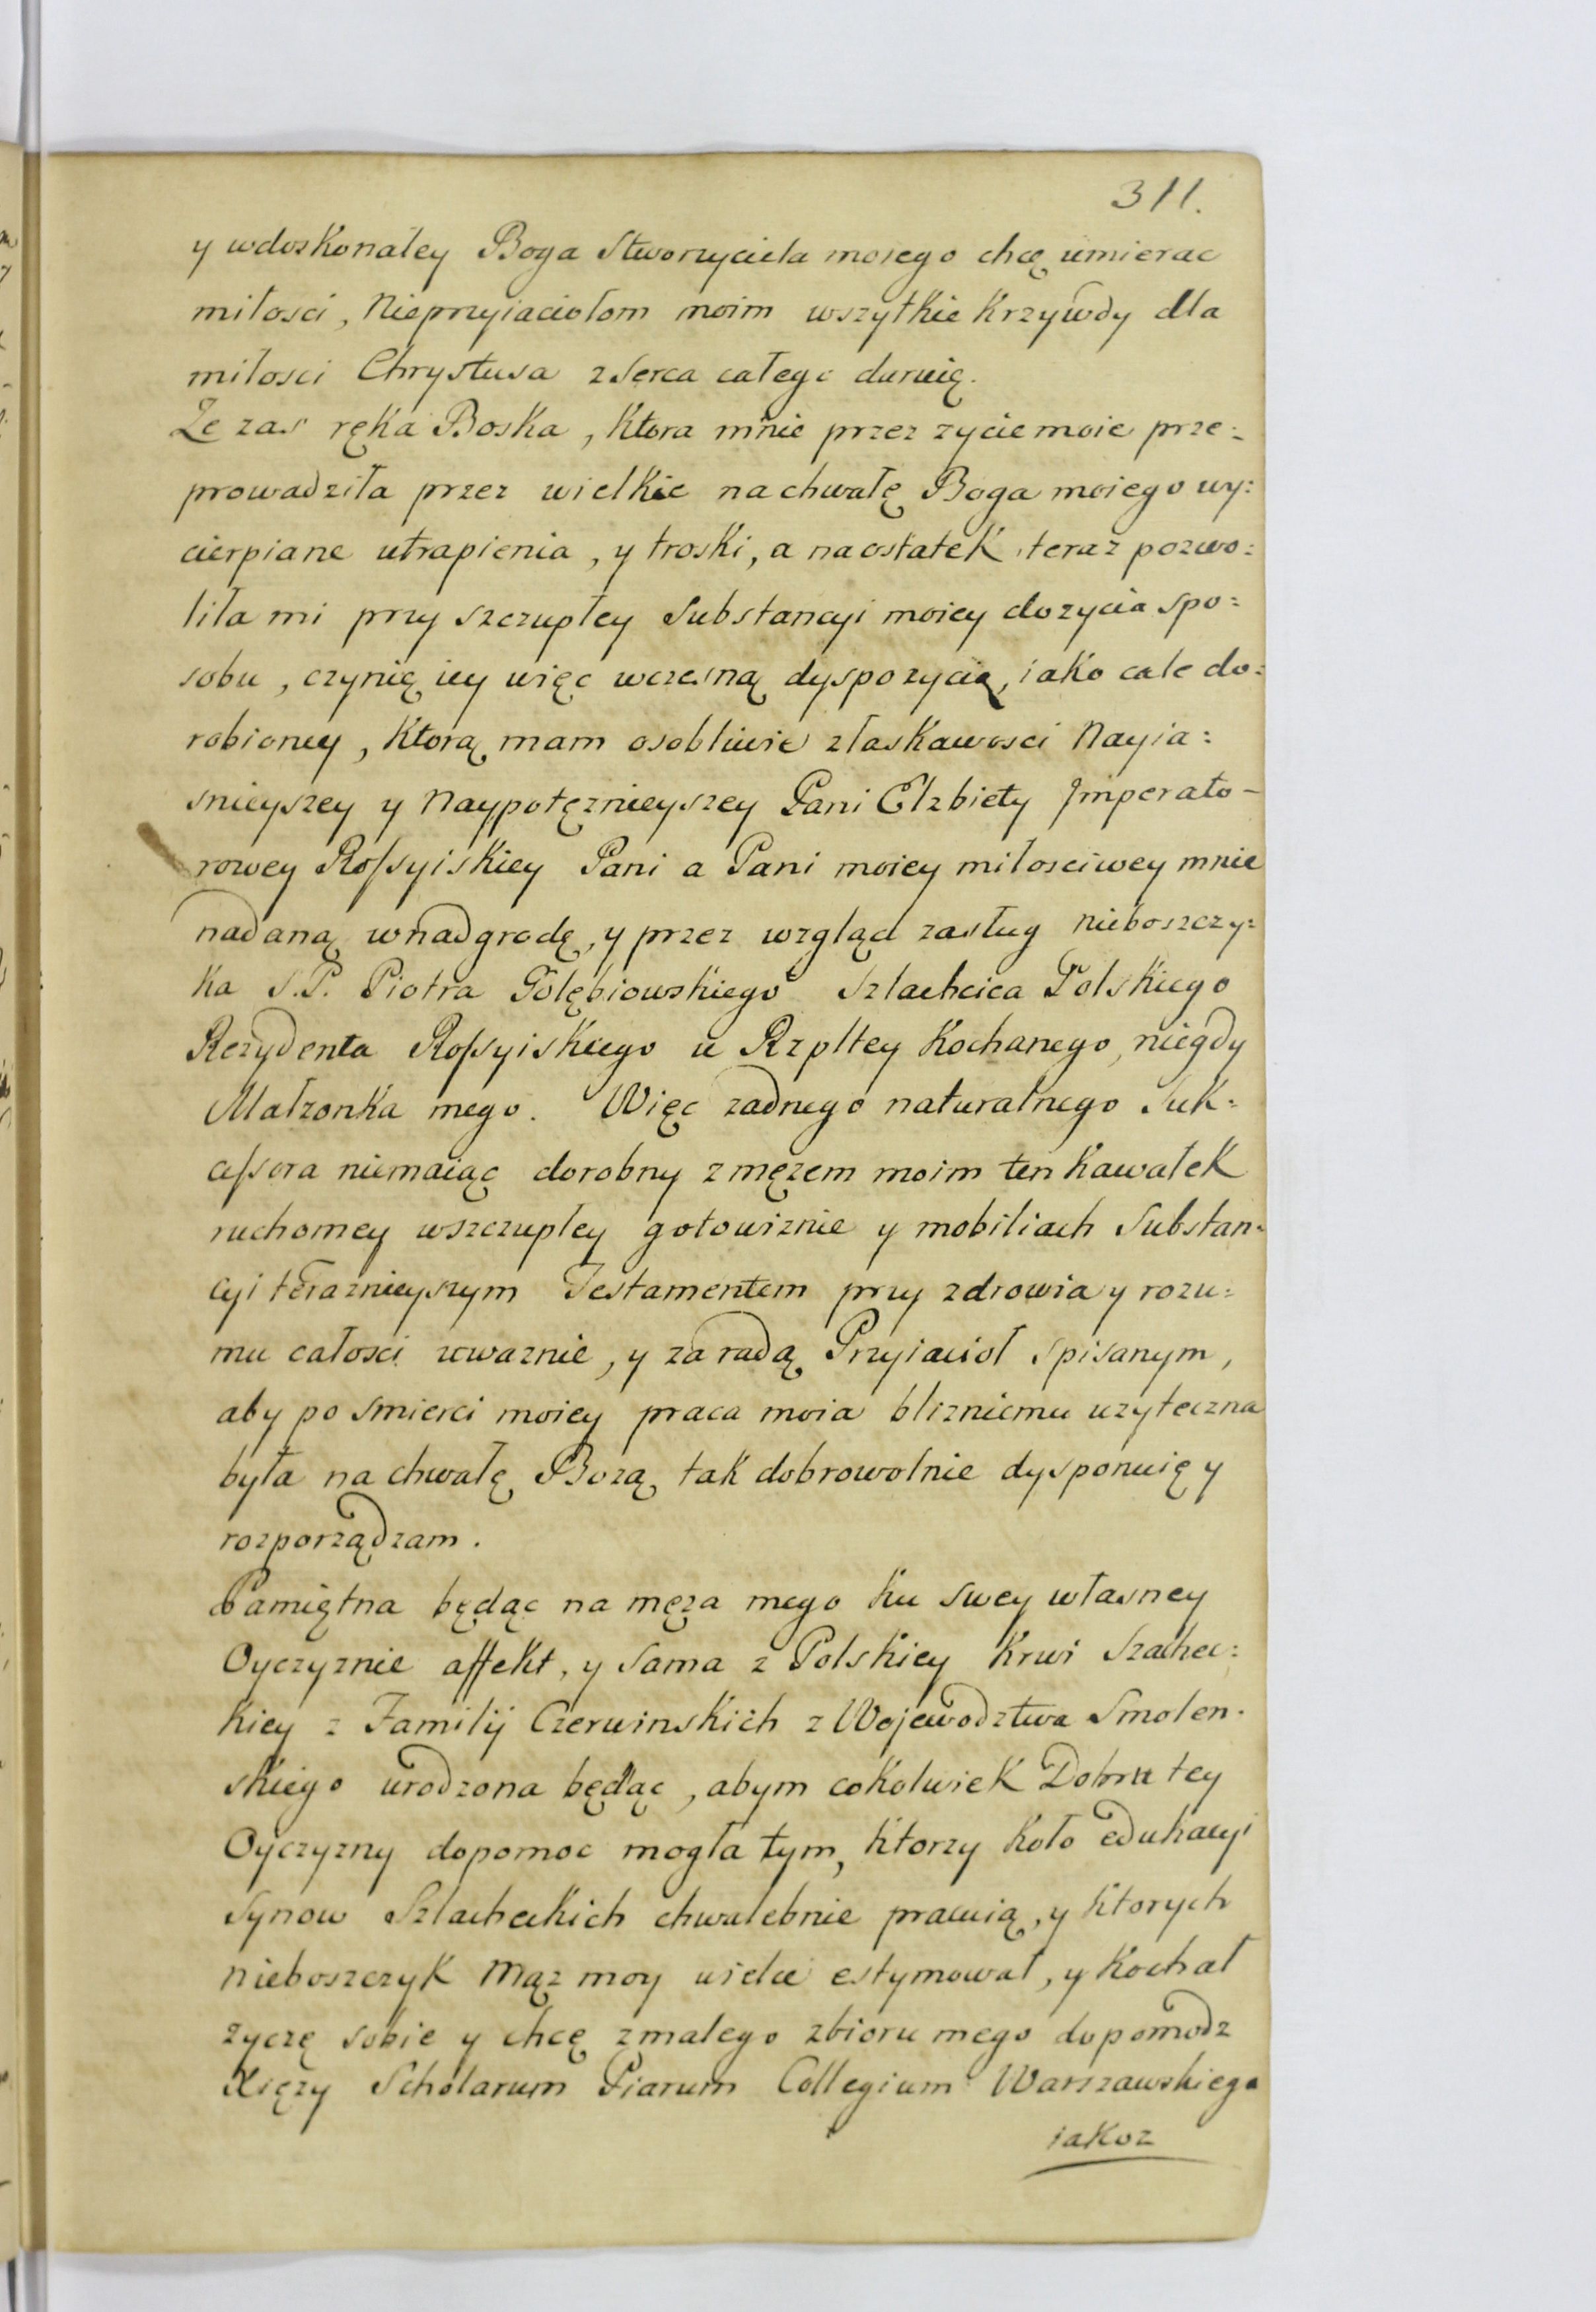 311.
y wdoskonałey Boga Stworzyciela mojego chcę umierac
miłosci, Nieprzyiaciołom moim wszytkie Krzywdy dla
miłosci Chrystusa z Serca całego daruię.
Ze zas ręka Boska, Ktora mnie przez zycie moie prze:
prowadziła przez wielkie na chwałę Boga moiego wy:
cierpiane utrapienia, y troski, a naostatek teraz pozwo:
liła mi przy szczupłey Substancyi moiey do zycia spo:
sobu, czynię iey więc wczesną dyspozycią, iako cale do:
robioney, Ktorą mam osobliwie złaskawosci Nayia:
snieyszey y Naypotęznieyszey Pani Elzbiety Imperato-
rowey Rossyiskiey Pani a Pani moiey miłosciwey mnie
nadaną wnadgrodę, y przez wzgląd zasług nieboszczy:
ka S.P. Piotra Gołębiowskiego Szlachcica Polskiego
Rezydenta Rossyiskiego u Rzpltey Kochanego, niegdy
Małzonka mego. Więc zadnego naturalnego Suk:
cessora niemaiąc dorobny z męzem moim ten Kawałek
ruchomey wszczupłey gotowiznie y mobiliach Substan:
cyi teraznieyszym Testamentem przy zdrowia y rozu:
mu całosci uwaznie, y za radą Przyiacioł spisanym,
aby po smierci moiey praca moia blizniemu uzyteczna
była na chwałę Bozą tak dobrowolnie dysponuię y
rozporządzam.
Pamiętna będąc na męza mego ku swey własney
Oyczyznie affekt, y Sama z Polskiey Krwi Szachec:
kiey z Familij Czerwinskich z Wojewodztwa Smolen:
skiego urodzona będąc, abym cokolwiek Dobru tey
Oyczyzny dopomoc mogła tym, ktorzy koło edukacyi
Synow Szlacheckich chwalebnie pracuią, y ktorych
nieboszczyk Mąz moy wielce estymował, y Kochał
zyczę sobie y chcę zmałego zbioru mego dopomodz
Xięzy Scholarum Piarum Collegium Warszawskiego
iakoz